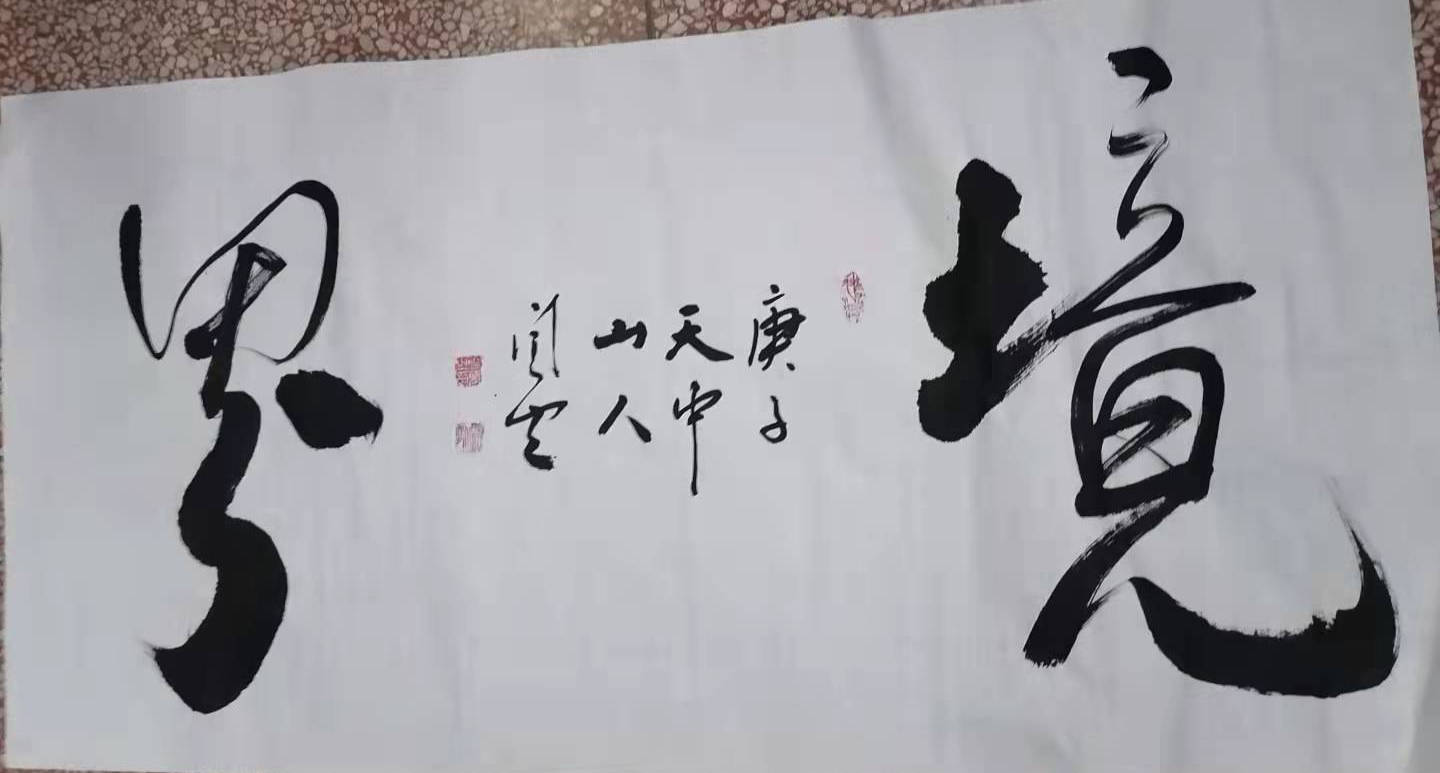 境
庚子
天中
山人
界